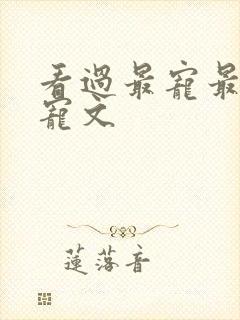 看過最寵最
寵文
蓮落音